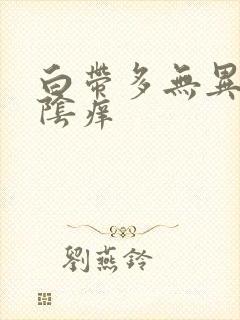 白帶多無異
陰痒
劉燕鈴